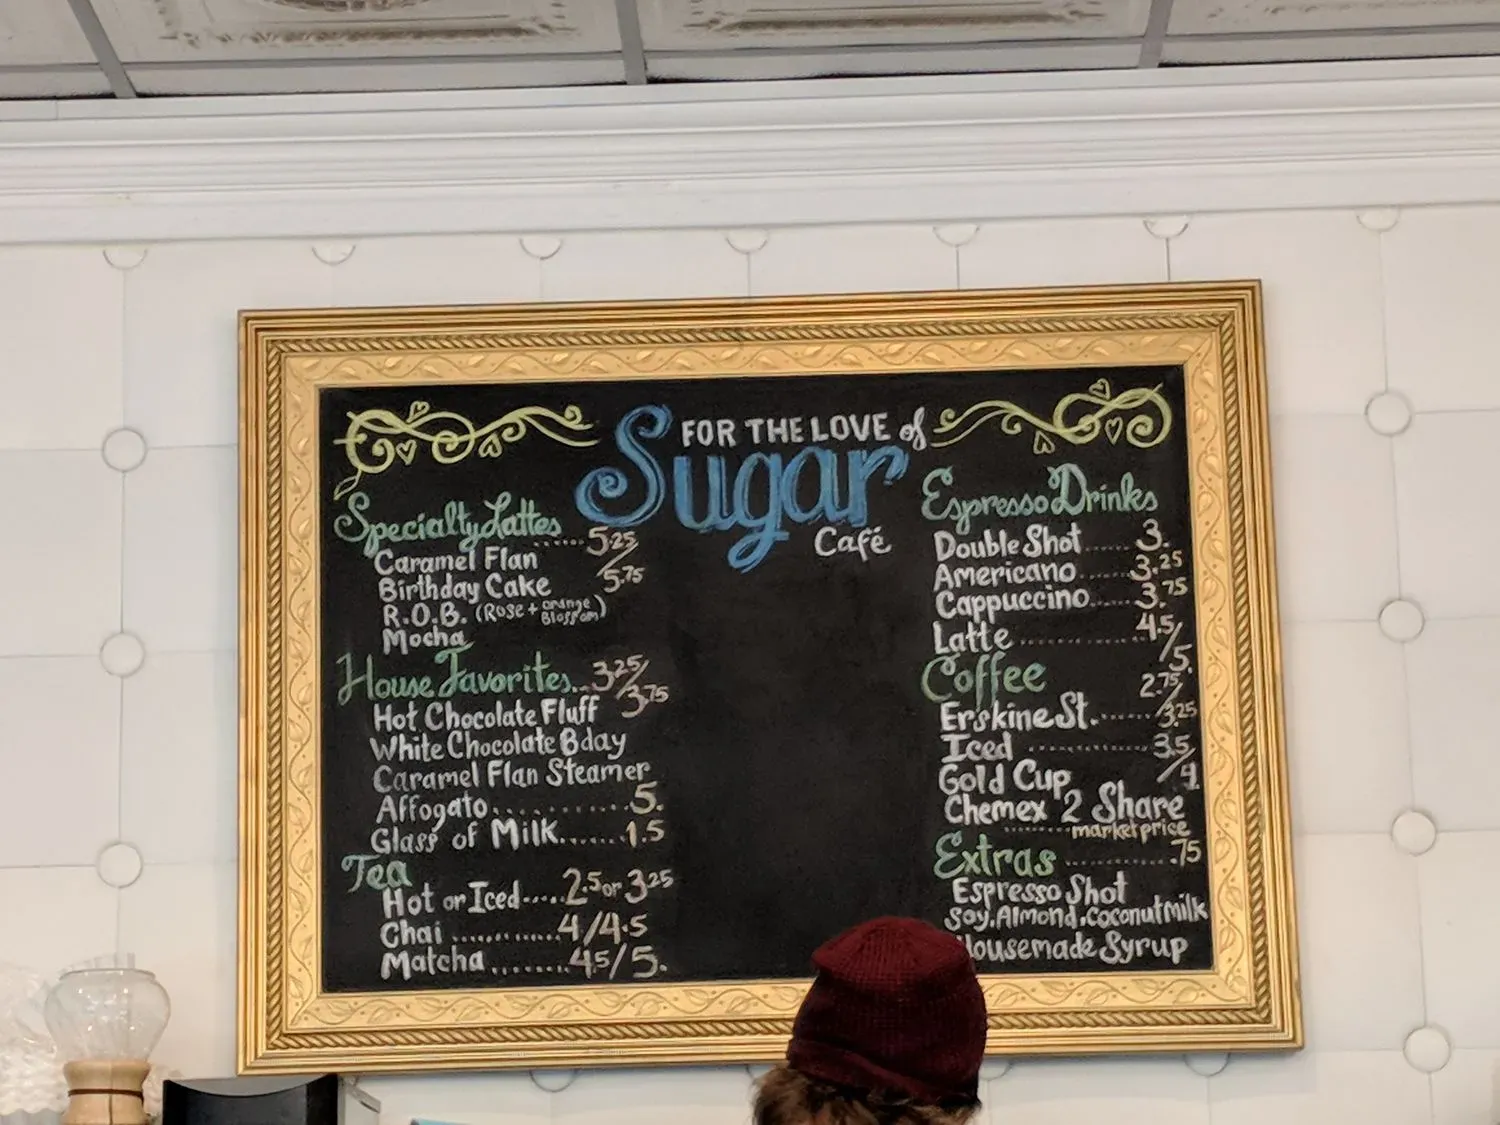 FOR THE LOVE of
Sugar
Café
Specialty Lattes
...... 5.25/5.75
Caramel Flan
Birthday Cake
R.O.B. (Rose + orange Blossom)
Mocha
House Favorites... 3.25/3.75
Hot Chocolate Fluff
White Chocolate Bday
Caramel Flan Steamer
Affogato.......... 5.
Glass of Milk....... 1.5
Tea
Hot or Iced..... 2.5 or 3.25
Chai ............ 4/4.5
Matcha........ 4.5/5.
Espresso Drinks
Double Shot ...... 3.
Americano....... 3.25
Cappuccino...... 3.75
Latte ............ 4.5/5.
Coffee
Erskine St. ....... 2.75/3.25
Iced ............ 3.5/4
Gold Cup
Chemex 2 Share
........ market price
Extras ............ .75
Espresso Shot
Soy, Almond, Coconut milk
Housemade Syrup